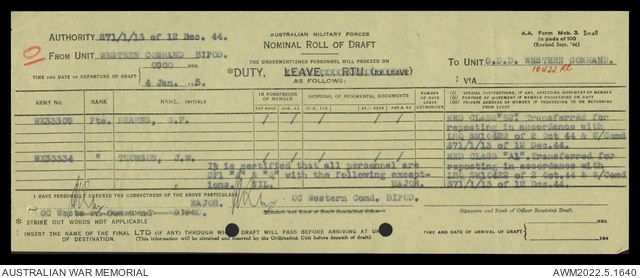 AUTHORITY S71/1/13 of 12 Dec. 44.
AUSTRALIAN MILITARY FORCES
NOMINAL ROLL OF DRAFT
A.A. Form Mob. 3.
In pads of 100
(Revised Sept. '44)
FROM UNIT WESTERN COMMAND BIPOD.
THE UNDERMENTIONED PERSONNEL WILL PROCEED ON
TO UNIT G.D.D. WESTERN COMMAND.
0900 HRS.
TIME AND DATE OF DEPARTURE OF DRAFT
4 Jan. 5.
*DUTY, LEAVE, RTU (EX LEAVE)
AS FOLLOWS:
VIA
ARMY No.
RANK
NAME, INITIALS
IN POSSESSION OF MEMBER
DISPOSAL OF REGIMENTAL DOCUMENTS
NUMBER OF DATE LEAVE AUTHORIZED
(1) SPECIAL INSTRUCTIONS, IF ANY, AFFECTING MOVEMENT OF MEMBER
(2) PURPOSE OF MOVEMENT OF MEMBER PROCEEDING ON DUTY
(3) PRIVATE ADDRESS OF MEMBER IF PROCEEDING TO OR RETURNING FROM LEAVE
WX33309 Pte. KEARNS, G.F. MED CLASS "B2". Transferred for
reposting in accordance with
LHQ SM10422 of 2 Oct 44 & W/Comd
S71/1/13 of 12 Dec. 44.
WX33334 " THOMSON, J.W. MED CLASS "A1". Transferred for
reposting in accordance with
LHQ SM10422 of 2 Oct 44 & W/Comd
S71/1/13 of 12 Dec. 44.
It is certified that all personnel are
DP1 "A" & "Z" with the following except-
ions. NIL. MAJOR.
I HAVE PERSONALLY CHECKED THE CORRECTNESS OF THE ABOVE PARTICULARS
MAJOR.
OC Western Comd. BIPOD.
OC Western Command BIPOD.
Signature and Rank of Draft Conducting Officer
Signature and Rank of Officer Receiving Draft
* STRIKE OUT WORDS NOT APPLICABLE
INSERT THE NAME OF THE FINAL LTD (IF ANY) THROUGH WHICH DRAFT WILL PASS BEFORE ARRIVING AT UNIT
OF DESTINATION. (This information will be obtained and inserted by the Originating Unit before departure of draft)
TIME AND DATE OF ARRIVAL OF DRAFT
HRS.
194
AUSTRALIAN WAR MEMORIAL
AWM2022.5.1640